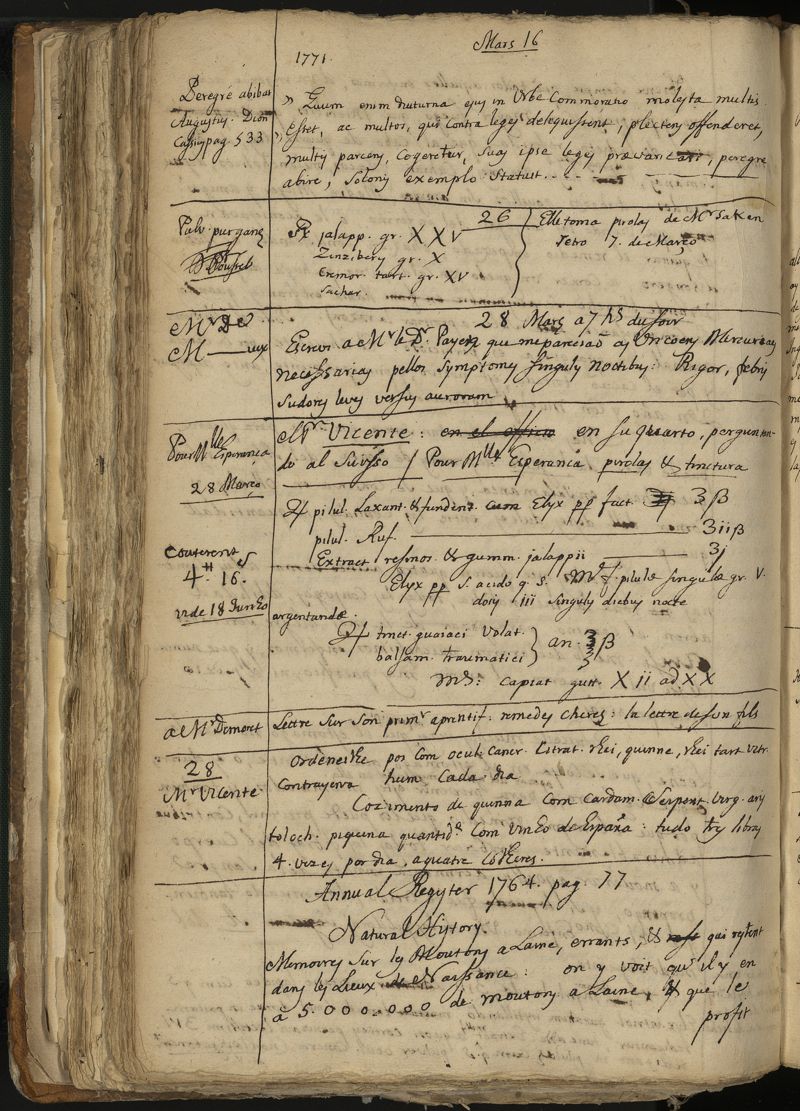 Mars 16
1771.
Peregrè abibat
Augustus. Dion
Cassius pag. 533
„ Quum enim diuturna ejus in Urbe Commoratio molesta multis
„ Esset, ac multos, qui contra leges deliquissent, plectens offenderet,
multis parcens, Cogeretur, suas ipse leges prævaricari, peregre
abire, Solonis exemplo statuit.
Pulv. purgans
Rx jalapp. gr. XXV
Zinziberis gr. X
Cremor. tart. gr. XV
Sachar.
26
Elle toma pirolas de Mr
Setro 7. de Março
Mr De
M——ux
28 Mars a 7 hs du soir
Escrevi a Mr le Dr. Payen que me pareciaõ as Uncoens Mercuriaes
necessarias pellos Symptomes singulis noctibus: Rigor, febris
sudores leves versus auroram
Pour Mlle Esperança
28 Março
Mr. Vicente: en el officio en su quarto, pergunan-
do al Suisso / Pour Mlle Esperança pirolas & tinctura
pilul. Laxant. & fundent. cum Elyx pp fact. ʒβ
pilul. Ruf. ——— ʒiiβ
Extract resinos. & gumm. jalappii ——— ʒj
Elyx pp s. acido q. s. Mf. pilulæ singulæ gr. V.
dosis iii singulis diebus nocte
argentandæ.
Couterent
4tt. 16s.
vide 18 Junho
tinct. guaiaci Volat.
balsam. traumatici
an. ʒβ
Ms: Capiat gutt. XII ad XX
a Mr Demoret
Lettre sur son primr aprentif: remedes cheres: la lettre de son fils
28
Mr Vicente
Ordenei lhe pos Com ocul. Cancr. Citrat. rhei, quinne, rhei tart vitr.
Contrayerva hum Cada dia
Cozimento de quinna Com Cardam. Serpent. virg. aris
toloch. piquena quantide. Com Vinho de España: tudo tres libras
4. vezes por dia, a quatre Colheres.
Annual Register 1764. pag. 77
Natural History.
Memoires sur les Moutons a Laine, errants, & qui restent
dans les Lieux de Naissance: on y voit qu'il y en
a 5.000.000 de moutons a Laine, & que le
profit